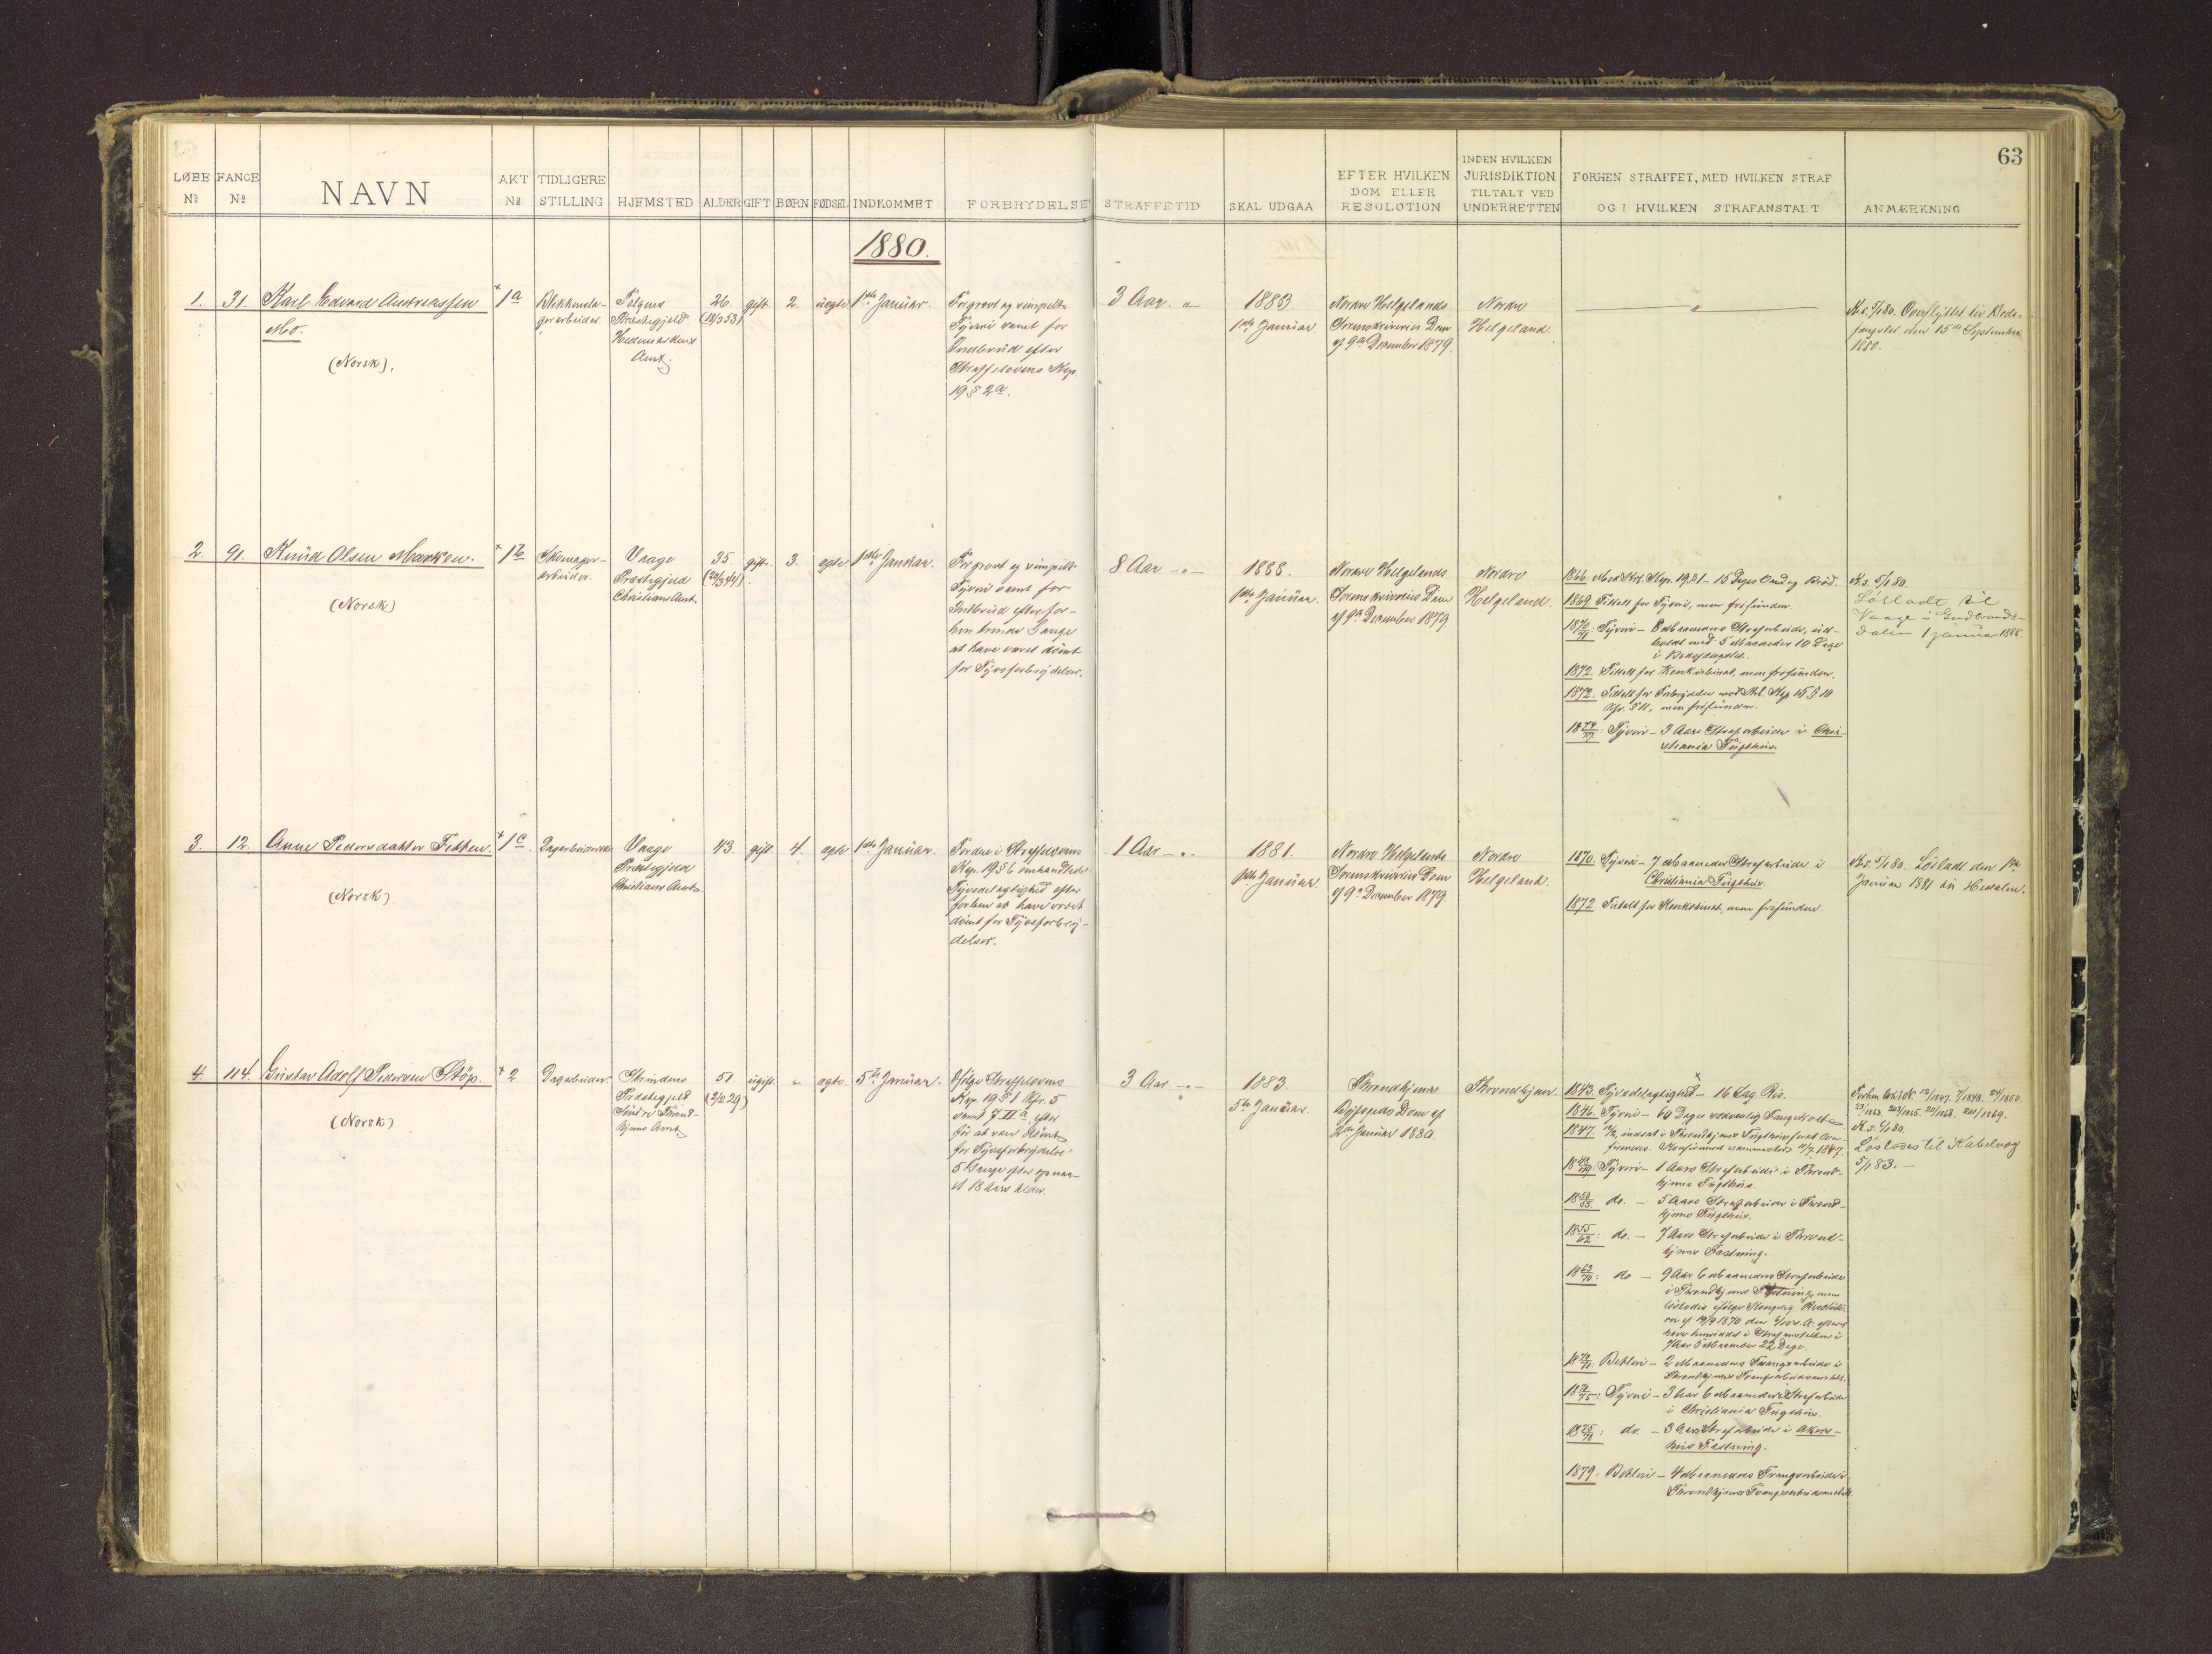 63
LØBE FANGE AKT TIDLIGERE
Nº Nº NAVN Nº STILLING HJEMSTED ALDER GIFT BØRN FØDSEL INDKOMMET FORBRYDELSE
STRAFFETID SKAL UDGAA
EFTER HVILKEN
DOM ELLER
RESOLOTION
INDEN HVILKEN
JURISDIKTION
TILTALT VED
UNDERRETTEN
FORHEN STRAFFET, MED HVILKEN STRAF
OG I HVILKEN STRAFANSTALT
ANMÆRKNING
1880.
1. 31. Karl Edvard Andreassen
Mo.
(Norsk),
1a
Blikkensla-
gerarbeider.
Præstegjeld
Hedemarkens
Amt.
26.
gift.
2.
uægte
1ste Januar.
Forgrovt og simpelt
Tyveri samt for
Indbrud efter
Straffelovens Kap.
19 § 2a.
3 Aar. „
1883
1ste Januar
Nordre Helgelands
Sorenskriveries Dom
af 9de December 1879.
Nordre
Helgeland.
„
K.s. 5/1 80. Overflyttet til Bods-
fængslet den 15de September
1880.
2. 91. Knud Olsen
(Norsk)
1b
Skomager-
arbeider.
Vaage
Præstegjeld
Christians Amt.
35.
gift.
3.
ægte
1ste Januar.
For grovt og simpelt
Tyveri samt for
Indbrud efter for-
hen trende Gange
at have været dømt
for Tyvsforbrydelser.
8 Aar — „ —
1888.
1ste Januar.
Nordre Helgelands
Sorenskriveries Dom
af 9de December 1879
Nordre
Helgeland.
15 Dages Vand og Brød.
1869. Tiltalt for Tyveri, men frifunden.
1870/71: Tyveri – 8 Maaneders Strafarbeide, ud-
holdt med 5 Maaneder 10 Dage
i Bodsfængslet.
1872. Tiltalt for Konkubinat, men frifunden.
1872. Tiltalt for Forbrydelse mod Strl. Kap 15 § 10
kfr. § 11, men frifunden.
1874/77: Tyveri – 3 Aars Strafarbeide i Chri-
stiania Tugthus.
K.s. 5/1 80.
Løsladt til
Vaage i Gudbrands-
dalen 1 januar 1888
3. 12. Anne Pedersdatter
(Norsk)
1c
Vaage
Præstegjeld
Christians Amt.
43.
gift
4.
ægte
1ste Januar.
For den i Straffelovens
Kap. 19 § 6 omhandlede
Tyvsdelagtighed efter
forhen at have været
dømt for Tyvsforbry-
delser.
1 Aar — „ —
1881.
1ste Januar
Nordre Helgelands
Sorenskriveries Dom
af 9de December 1879
Nordre
Helgeland.
1870. Tyveri – 7 Maaneders Strafarbeide i
Christiania Tugthus.
1872 Tiltalt for Konkubinat, men frifunden.
K.s. 5/1 80. Løsladt den 1ste
Januar 1881 til
4. 114. Gustav Adolf Pedersen Støp.
(Norsk)
2
Dagarbeider.
Strindens
Præstegjeld
Søndre Thrond-
hjems Amt
51
(2/2 29)
ugift.
„
ægte.
5te Januar.
Ifølge Straffelovens
Kap. 19 § 1 Kfr. 5
samt 7 II a. efter
før at være dømt
for Tyvsforbrydelse
5 Gange efter opnaa-
et 18 Aars Alder.
3 Aar — „ —
1883.
5te Januar.
Throndhjems
Byfogeds Dom af
2den Januar 1880.
Throndhjem.
1843. Tyvsdelagtighed – 16 Slag Ris.
1846. Tyveri –
1847.
1848/49: Tyveri – 1 Aars Strafarbeide i Thrond-
hjems Tugthus.
1850/55 do. – 5 Aars Strafarbeide i Thrond-
hjems Tugthus.
1855/62: do. – 7 Aars Strafarbeide i Thrond-
hjems Fæstning.
1863/70: do – 9 Aar 6 Maaneders Strafarbeide
i Throndhjems Fæstning, men
7 Aar 5 Maaneder 22 Dage.
Betleri – 2 Maaneders Tvangsarbeide i
Throndhjems Tvangsarbeidsanstalt.
Tyveri – 3 Aar 6 Maaneders Strafarbeide
i Christiania Tugthus.
1875/78: do. – 3 Aars Strafarbeide i Akers-
hus Fæstning.
1879. Betleri – 4 Maaneders Tvangsarbeide i
Throndhjems Tvangsarbeidsanstalt.
Løslodes til Kabelvaag
5/1 83. –